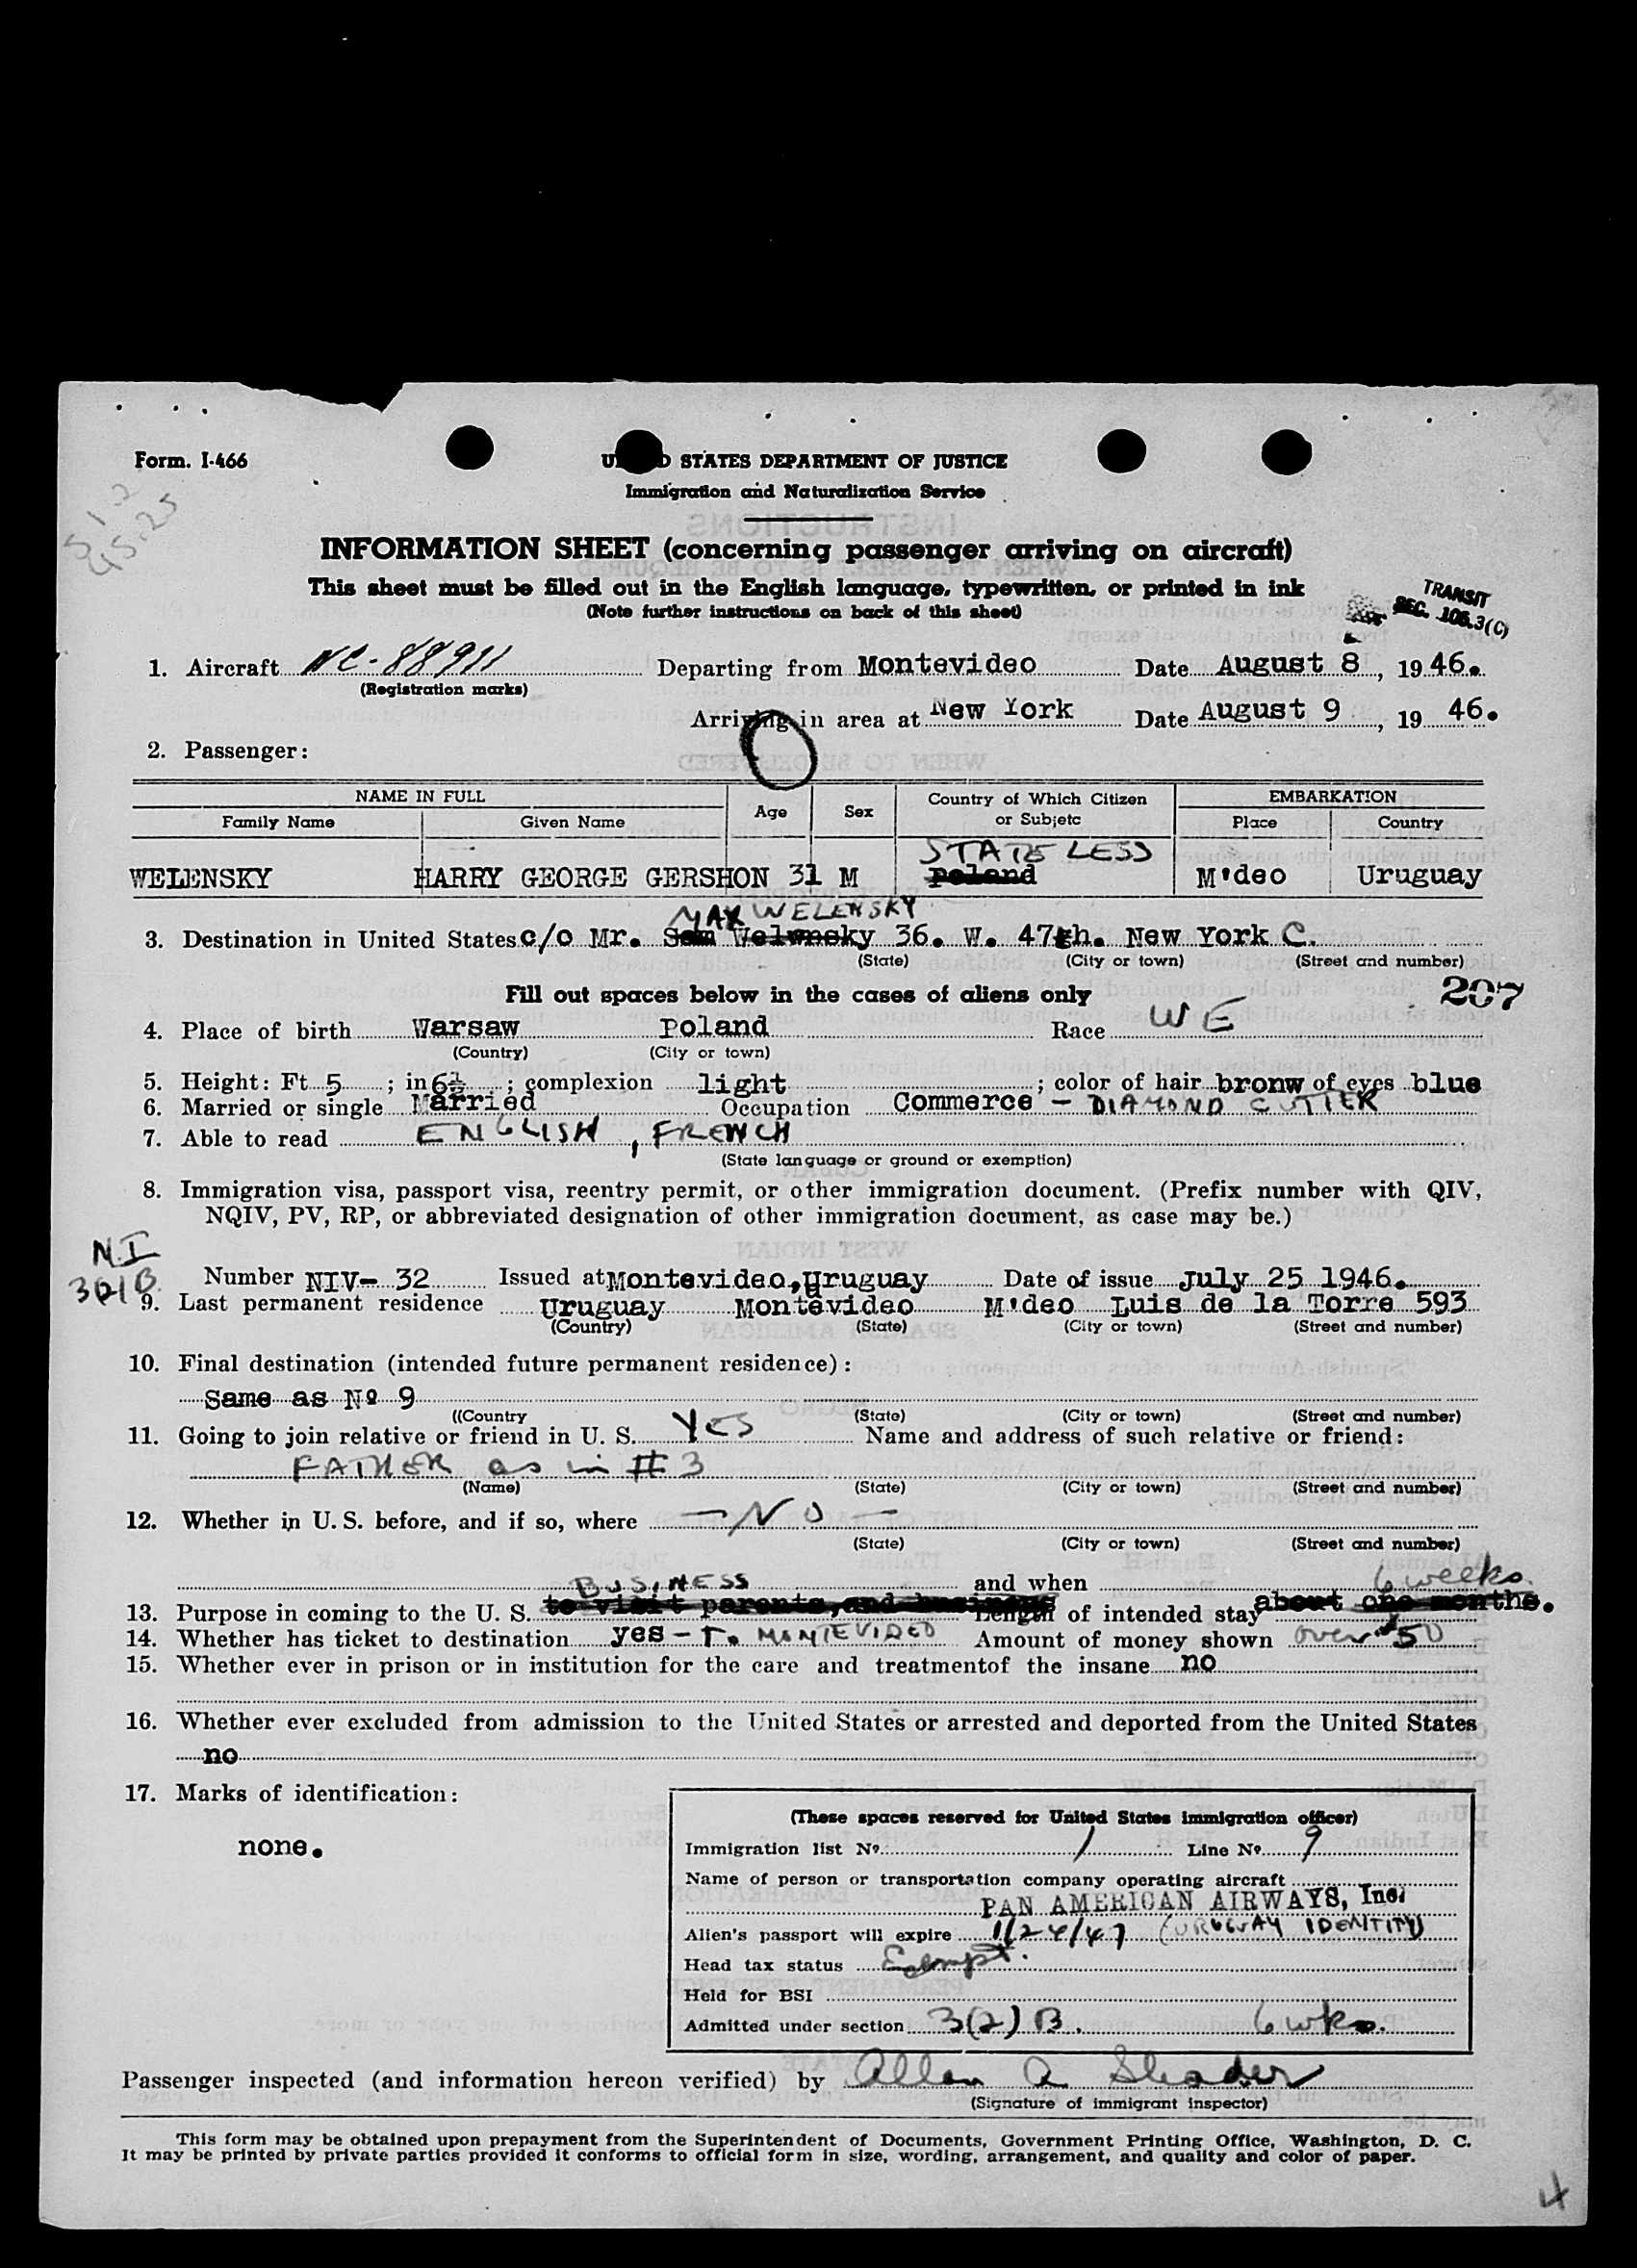 Form. I-466
U D STATES DEPARTMENT OF JUSTICE
Immigration and Naturalization Service
INFORMATION SHEET (concerning passenger arriving on aircraft)
This sheet must be filled out in the English language, typewritten, or printed in ink
(Note further instructions on back of this sheet)
TRANSIT
SEC. 106.3(C)
1. Aircraft NC-88911 Departing from Montevideo Date August 8, 19 46.
(Registration marks)
Arriving in area at New York Date August 9, 19 46.
2. Passenger:
NAME IN FULL Age Sex Country of Which Citizen or Subjetc EMBARKATION
Family Name Given Name Place Country
STATELESS
WELENSKY HARRY GEORGE GERSHON 31 M Poland M'deo Uruguay
MAX WELENSKY
3. Destination in United States c/o Mr. Sam Welwnsky 36. W. 47th. New York C.
(State) (City or town) (Street and number)
Fill out spaces below in the cases of aliens only
207
4. Place of birth Warsaw Poland Race WE
(Country) (City or town)
5. Height: Ft 5 ; in 6½ ; complexion light ; color of hair bronw of eyes blue
6. Married or single Married Occupation Commerce - DIAMOND CUTTER
7. Able to read ENGLISH, FRENCH
(State language or ground or exemption)
8. Immigration visa, passport visa, reentry permit, or other immigration document. (Prefix number with QIV,
NQIV, PV, RP, or abbreviated designation of other immigration document, as case may be.)
N.I
Number NIV- 32 Issued at Montevideo, Uruguay Date of issue July 25 1946.
9. Last permanent residence Uruguay Montevideo M'deo Luis de la Torre 593
(Country) (State) (City or town) (Street and number)
10. Final destination (intended future permanent residence):
Same as Nº 9
((Country (State) (City or town) (Street and number)
11. Going to join relative or friend in U. S. YES Name and address of such relative or friend:
FATHER as in #3
(Name) (State) (City or town) (Street and number)
12. Whether in U. S. before, and if so, where - NO -
(State) (City or town) (Street and number)
BUSINESS and when 6 weeks
13. Purpose in coming to the U. S. to visit parents, and business Length of intended stay about one months.
14. Whether has ticket to destination yes - T. MONTEVIDEO Amount of money shown over $50
15. Whether ever in prison or in institution for the care and treatmentof the insane no
16. Whether ever excluded from admission to the United States or arrested and deported from the United States
no
17. Marks of identification:
none.
(These spaces reserved for United States immigration officer)
Immigration list Nº. 1 Line Nº 9
Name of person or transportation company operating aircraft
PAN AMERICAN AIRWAYS, Inc.
Alien's passport will expire 1/24/47 (URUGUAY IDENTITY)
Head tax status Exempt.
Held for BSI
Admitted under section 3(2) B. 6 wks.
Passenger inspected (and information hereon verified) by Allen A Shader
(Signature of immigrant inspector)
This form may be obtained upon prepayment from the Superintendent of Documents, Government Printing Office, Washington, D. C.
It may be printed by private parties provided it conforms to official form in size, wording, arrangement, and quality and color of paper.
4